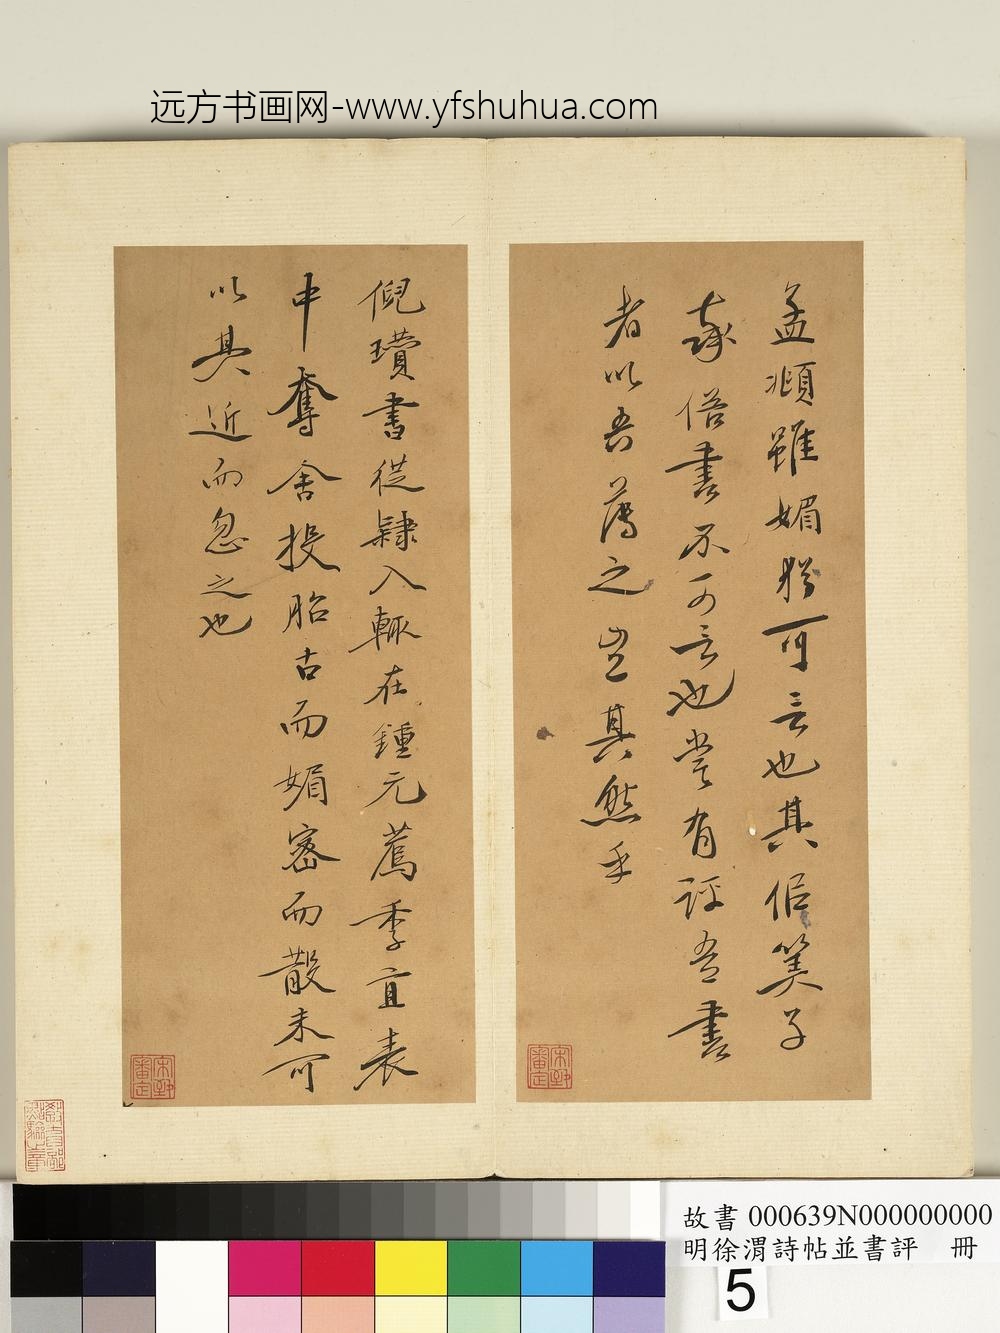 远方书画网-www.yfshuhua.com
孟頫雖媚猶可言也其似笑子
啄俗書不可言也嘗有評吾書
者以吾薄之豈其然乎
倪瓚書從隸入輒在鍾元薦季直表
中奪舍投胎古而媚密而散未可
以其近而忽之也
宋犖審定
宋犖審定
故書 000639N000000000
明徐渭詩帖並書評 冊
5